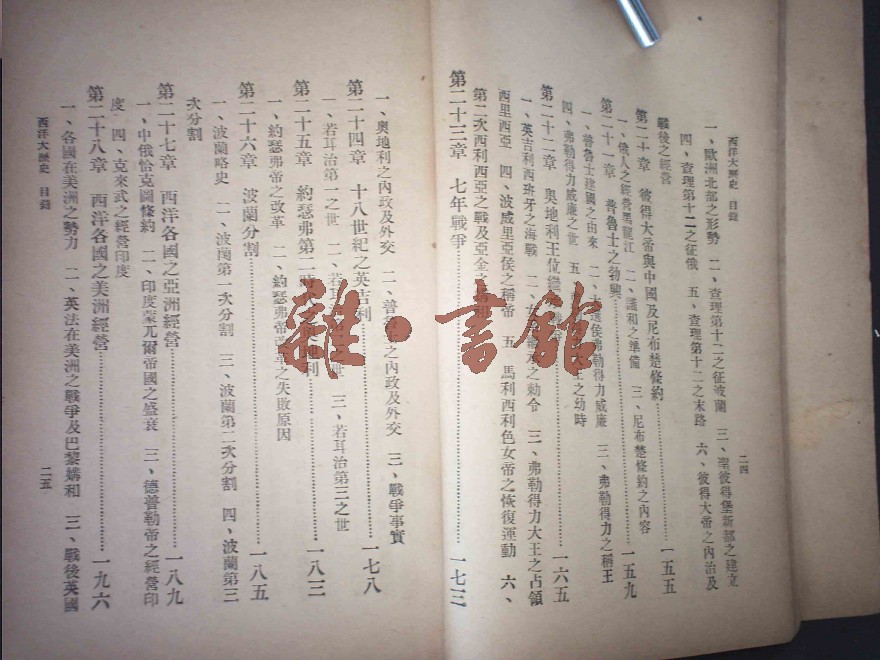 西洋大歷史　目錄
二四
一、歐洲北部之形勢　二、查理第十二之征波蘭　三、聖彼得堡新都之建立
四、查理第十二之征俄　五、查理第十二之末路　六、彼得大帝之內治及
戰後之經營
第二十章　彼得大帝與中國及尼布楚條約……一五五
一、俄人之經營黑龍江　二、議和之準備　三、尼布楚條約之內容
第二十一章　普魯士之勃興……一五九
一、普魯士建國之由來　二、大選侯弗勒得力威廉　三、弗勒得力之稱王
四、弗勒得力威廉之世　五、大王之幼時
第二十二章　奧地利王位繼……一六五
一、英吉利西班牙之海戰　二、女之勅令　三、弗勒得力大王之占領
西里西亞　四、波威里亞侯之稱帝　五、馬利西利色女帝之恢復運動　六、
第二次西利西亞之戰及亞金之和
第二十三章　七年戰爭……一七三
一、奧地利之內政及外交　二、普魯士之內政及外交　三、戰爭事實
第二十四章　十八世紀之英吉利……一七八
一、若耳治第一之世　二、若耳治之世　三、若耳治第三之世
第二十五章　約瑟弗第二時利……一八三
一、約瑟弗帝之改革　二、約瑟弗帝改革之失敗原因
第二十六章　波蘭分割……一八五
一、波蘭略史　二、波蘭第一次分割　三、波蘭第二次分割　四、波蘭第三
次分割
第二十七章　西洋各國之亞洲經營……一八九
一、中俄恰克圖條約　二、印度蒙兀爾帝國之盛衰　三、德普勒帝之經營印
度　四、克來武之經營印度
第二十八章　西洋各國之美洲經營……一九六
一、各國在美洲之勢力　二、英法在美洲之戰爭及巴黎媾和　三、戰後英國
西洋大歷史　目錄
二五
雜·書館